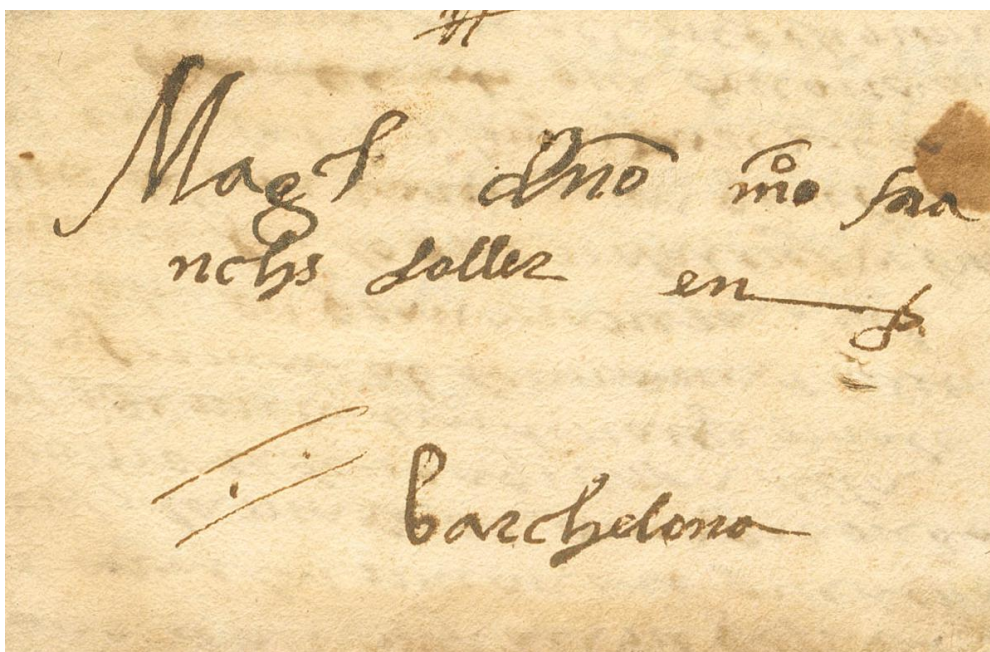 Mag.f dño mõ fra
nchs soller en
barchelona